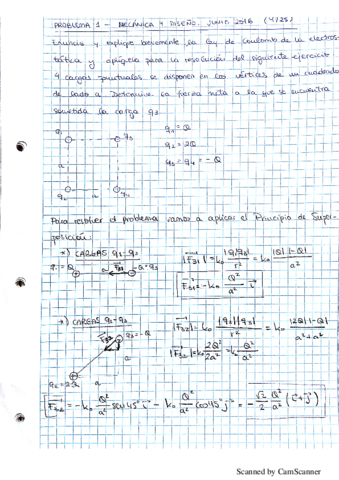 PROBLEMA 1 - MECÁNICA Y DISEÑO. JUNIO 2016 (4/25)
Enuncie y explique brevemente la ley de Coulomb de la electros-
tática y aplíquela para la resolución del siguiente ejercicio
4 cargas puntuales se disponen en los vértices de un cuadrado
de lado a. Determine la fuerza neta a la que se encuentra
sometida la carga q3.
q1 q3 q1 = Q
a q2 = 2Q
q3 = q4 = -Q
q2 a q4
Para resolver el problema vamos a aplicar el Principio de Super-
posición:
*) CARGAS q1-q3 |F31| = k0 |q1||q3| / r² = k0 |Q||-Q| / a²
q1 = Q a F31 -Q = q3
F31 = -k0 Q²/a² i
*) CARGAS q2-q3 |F32| = k0 |q2||q3| / r² = k0 |2Q||-Q| / a²+a²
F32 q3 = -Q
|F32| = k0 2Q²/2a² = k0 Q²/a²
q2 = 2Q a
F32 = -k0 Q²/a² sen45° i - k0 Q²/a² cos45° j = -√2/2 Q²/a² (i+j)
Scanned by CamScanner